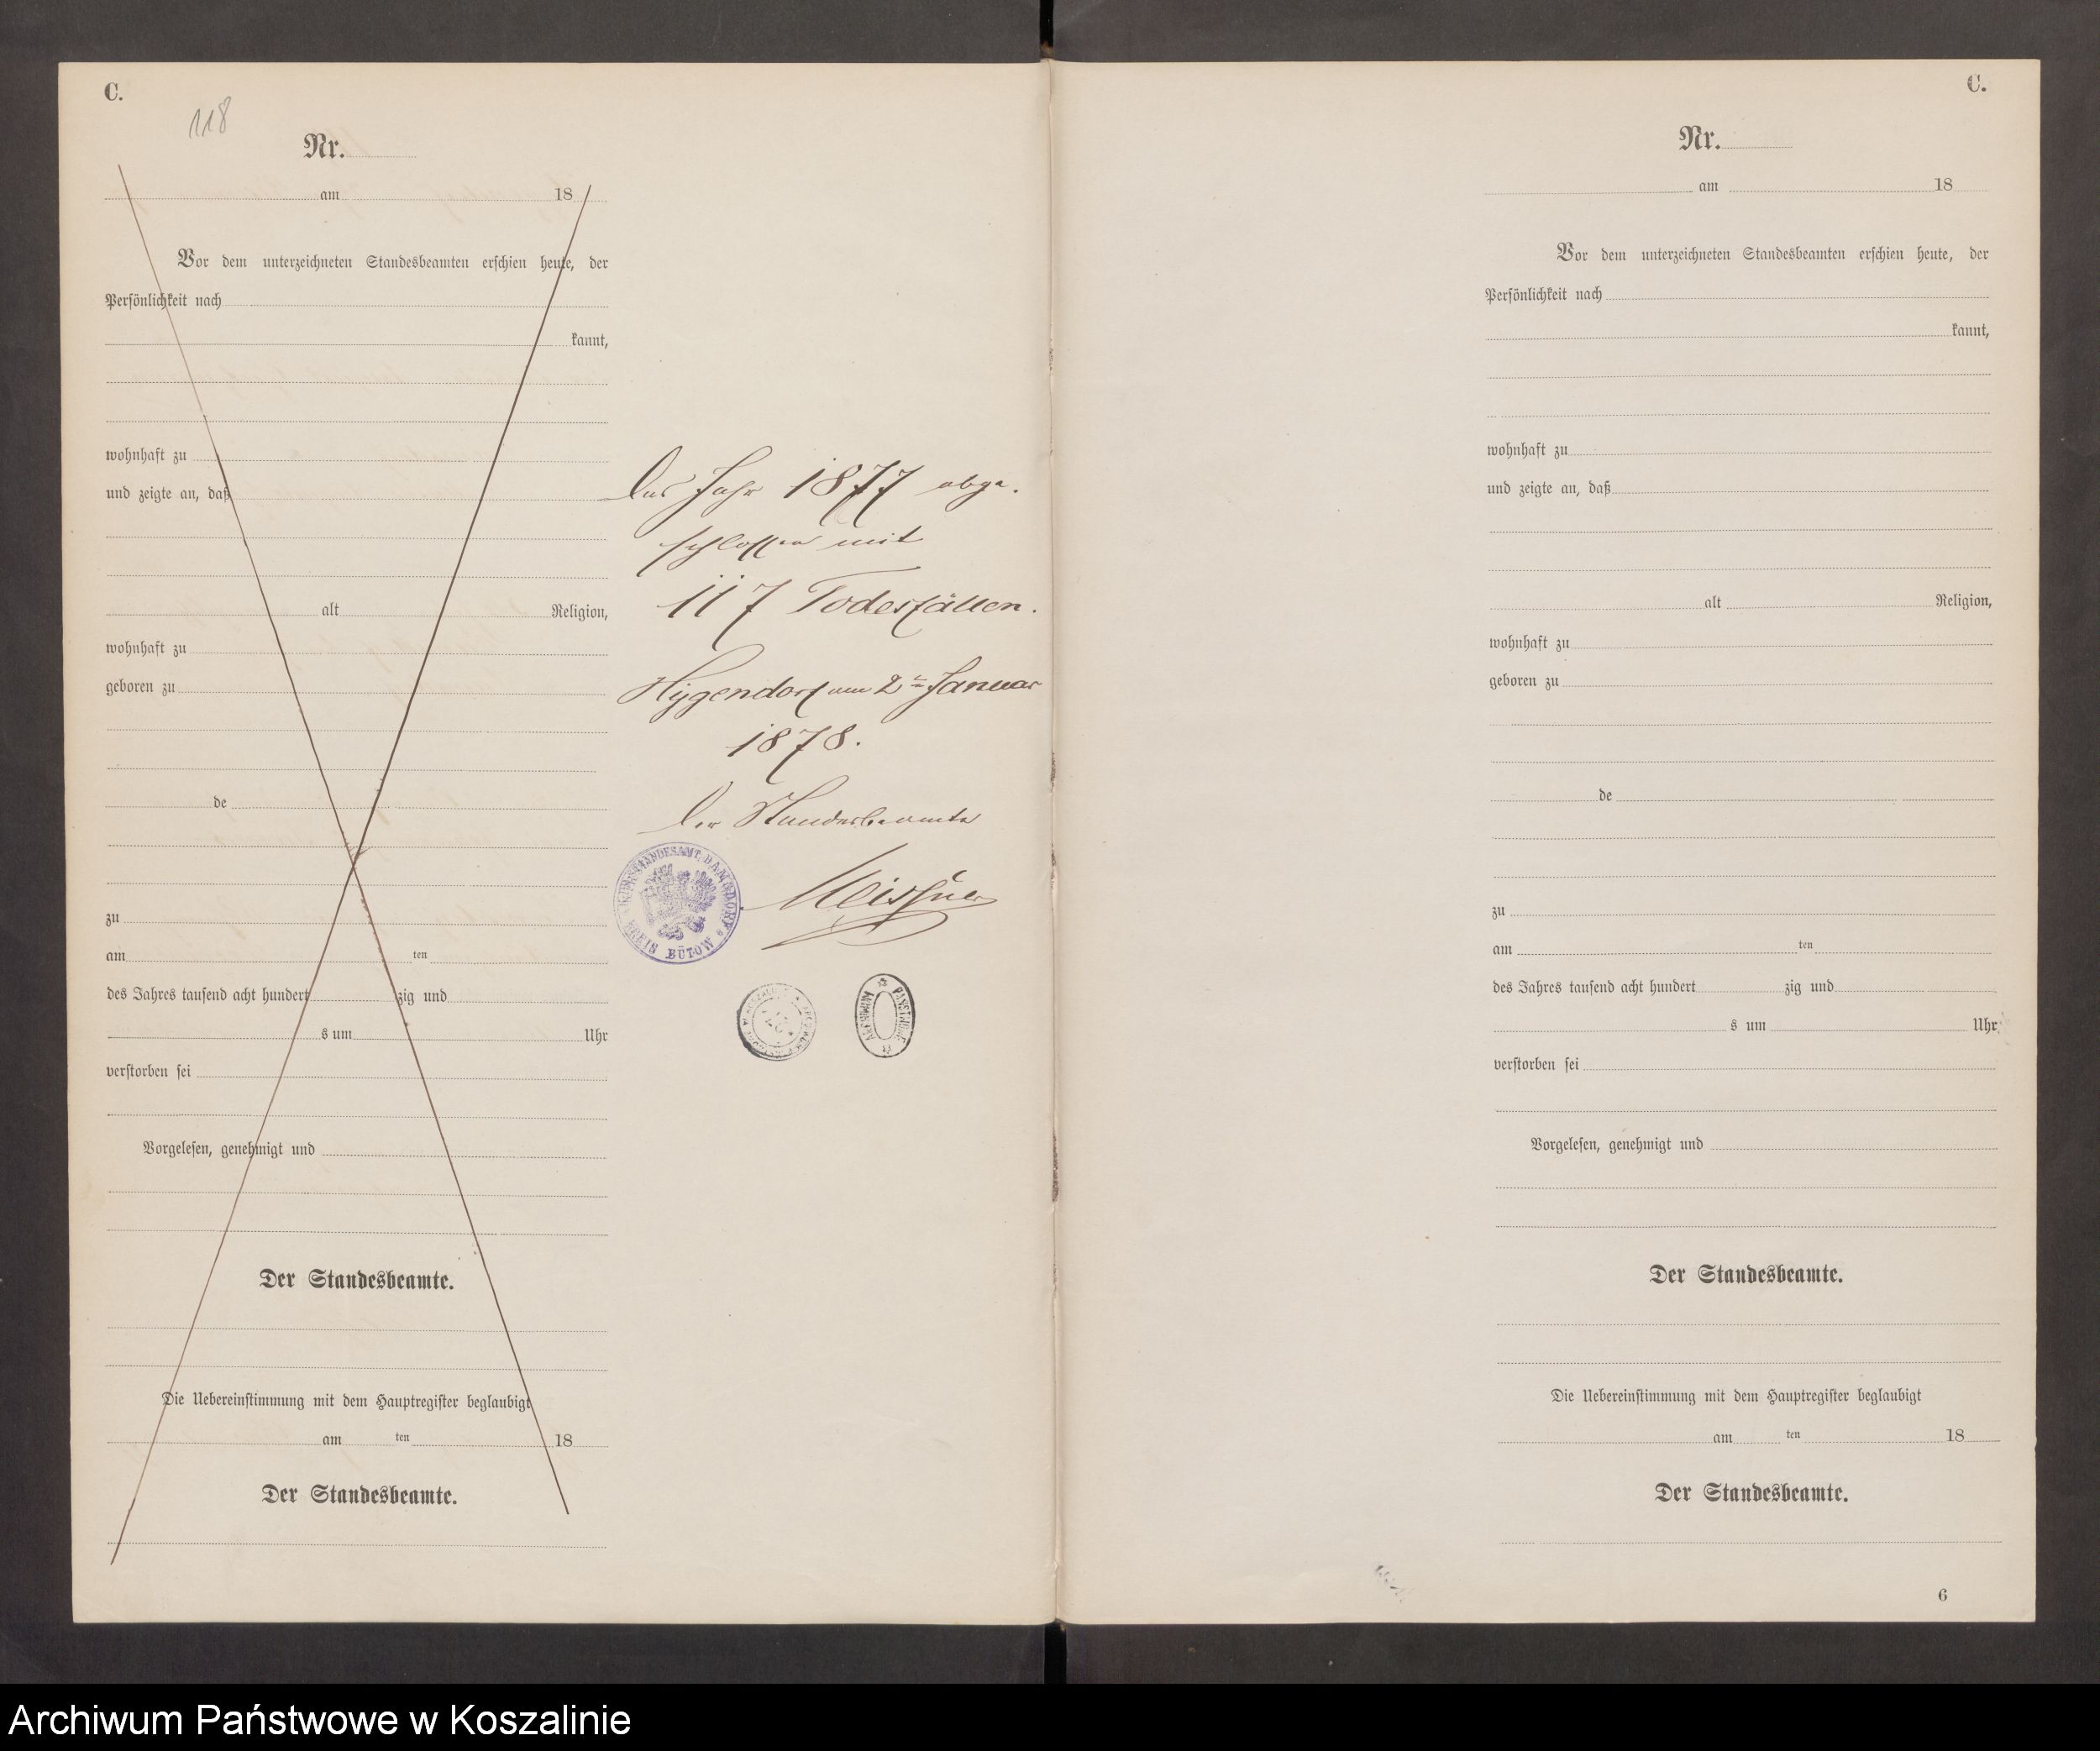 C.
118
Nr.
am 18
Vor dem unterzeichneten Standesbeamten erschien heute, der
Persönlichkeit nach
kannt,
wohnhaft zu
und zeigte an, daß
alt Religion,
wohnhaft zu
geboren zu
de
zu
am ten
des Jahres tausend acht hundert zig und
s um Uhr
verstorben sei
Vorgelesen, genehmigt und
Der Standesbeamte.
Die Uebereinstimmung mit dem Hauptregister beglaubigt
am ten 18
Der Standesbeamte.
Das Jahr 1877 abge-
schlossen mit
117 Todesfällen.
am 2ten Januar
1878.
Der Standesbeamte
Meissner
STANDESAMT DAMSDORF
KREIS BÜTOW
C.
Nr.
am 18
Vor dem unterzeichneten Standesbeamten erschien heute, der
Persönlichkeit nach
kannt,
wohnhaft zu
und zeigte an, daß
alt Religion,
wohnhaft zu
geboren zu
de
zu
am ten
des Jahres tausend acht hundert zig und
s um Uhr
verstorben sei
Vorgelesen, genehmigt und
Der Standesbeamte.
Die Uebereinstimmung mit dem Hauptregister beglaubigt
am ten 18
Der Standesbeamte.
6
Archiwum Państwowe w Koszalinie